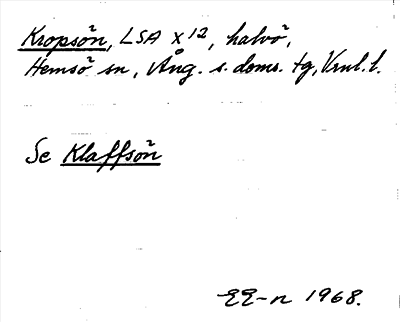 Kropsön, LSA X12, halvö,
Hemsö sn, Ång. s. doms. tg, Vrnl. l.
Se Klaffsön
EE-n 1968.